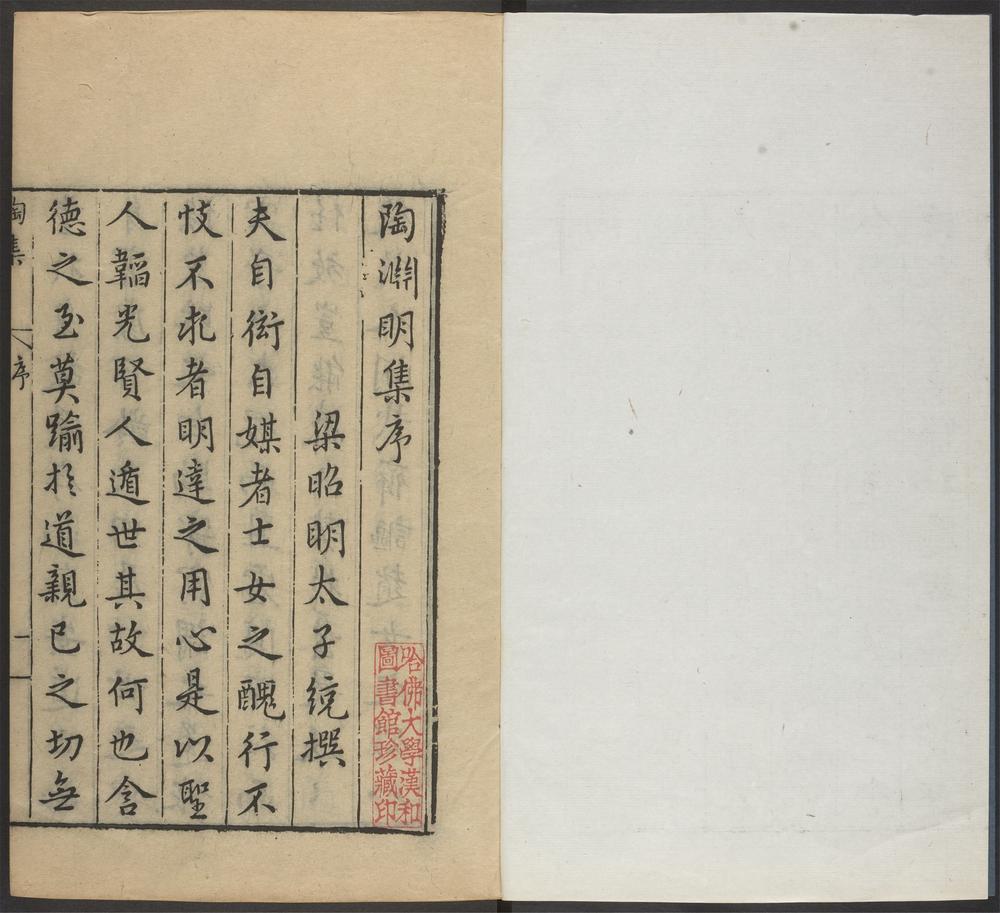 陶淵明集序
梁昭明太子統撰
夫自衒自媒者士女之醜行不
忮不求者明達之用心是以聖
人韜光賢人遁世其故何也含
德之至莫踰於道親已之切無
陶集
序
一
哈佛大學漢和
圖書館珍藏印